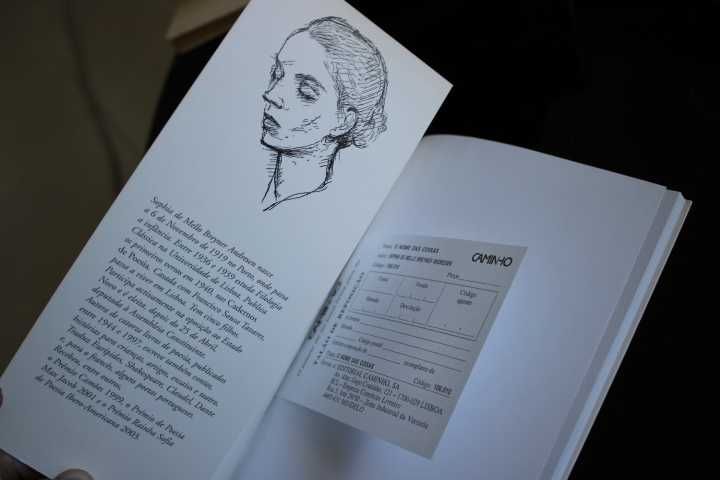 Sophia de Mello Breyner Andresen nasce
a 6 de Novembro de 1919 no Porto, onde passa
a infância. Entre 1936 e 1939 estuda Filologia
Clássica na Universidade de Lisboa. Publica
os primeiros versos em 1940, nos Cadernos
de Poesia. Casada com Francisco Sousa Tavares,
passa a viver em Lisboa. Tem cinco filhos.
Participa activamente na oposição ao Estado
Novo e é eleita, depois do 25 de Abril,
deputada à Assembleia Constituinte.
Autora de catorze livros de poesia, publicados
entre 1944 e 1997, escreve também contos,
histórias para crianças, artigos, ensaios e teatro.
Traduz Eurípedes, Shakespeare, Claudel, Dante
e, para o francês, alguns poetas portugueses.
Recebeu, entre outros,
o Prémio Camões 1999, o Prémio de Poesia
Max Jacob 2001 e o Prémio Rainha Sofia
de Poesia Ibero-Americana 2003.
CAMINHO
O NOME DAS COISAS
SOPHIA DE MELLO BREYNER ANDRESEN
Preço
Código
Devolução
Código postal
exemplares de
O NOME DAS COISAS
EDITORIAL CAMINHO, SA
1700-029 LISBOA